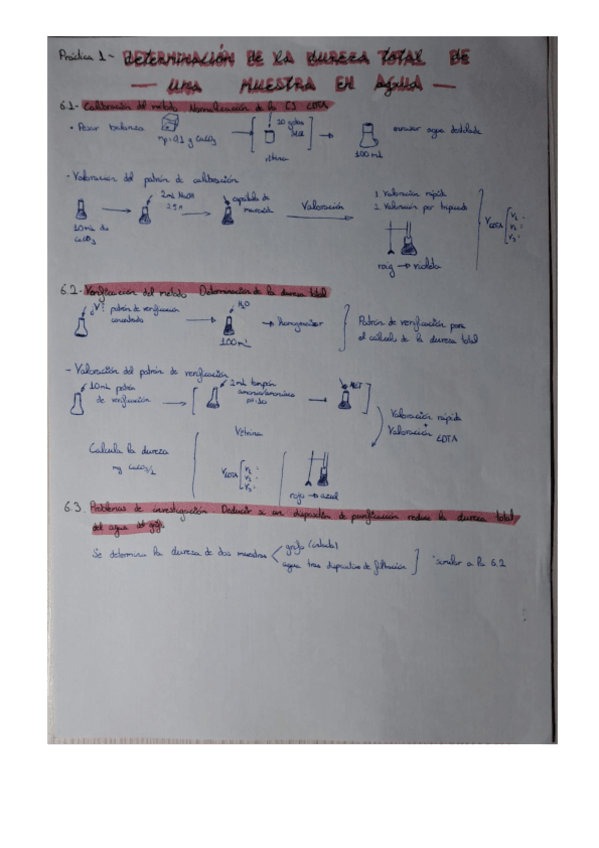 Práctica 1 - DETERMINACIÓN DE LA DUREZA TOTAL DE
— UNA MUESTRA EN AGUA —
6.1- Calibración del método Normalización de la EDTA
• Pesar balanza
mp=0.1 g CaCO3
20 gotas
HCl
vitrina
100 mL
enrasar agua destilada
- Valoración del patrón de calibración
10 mL de
CaCO3
2 mL NaOH
2.5 M
espátula de
murexida
Valoración
1 Valoración rápida
2 Valoración por triplicado
VEDTA V1 :
V2 :
V3 :
roig → violeta
6.2- Verificación del método Determinación de la dureza total
¿V? patrón de verificación
concentrado
H2O
100 mL
→ homogeneizar
Patrón de verificación para
el cálculo de la dureza total
- Valoración del patrón de verificación
10 mL patrón
de verificación
2 mL tampón
pH=10
NET
Valoración rápida
+
Valoración EDTA
Vitrina
Calcula la dureza
mg CaCO3/L
VEDTA V1 :
V2 :
V3 :
rojo → azul
6.3. Problemas de investigación Deducir si un dispositivo de purificación reduce la dureza total
del agua del grifo
Se determina la dureza de dos muestras
grifo (inicial)
agua tras dispositivo de filtración
similar a la 6.2